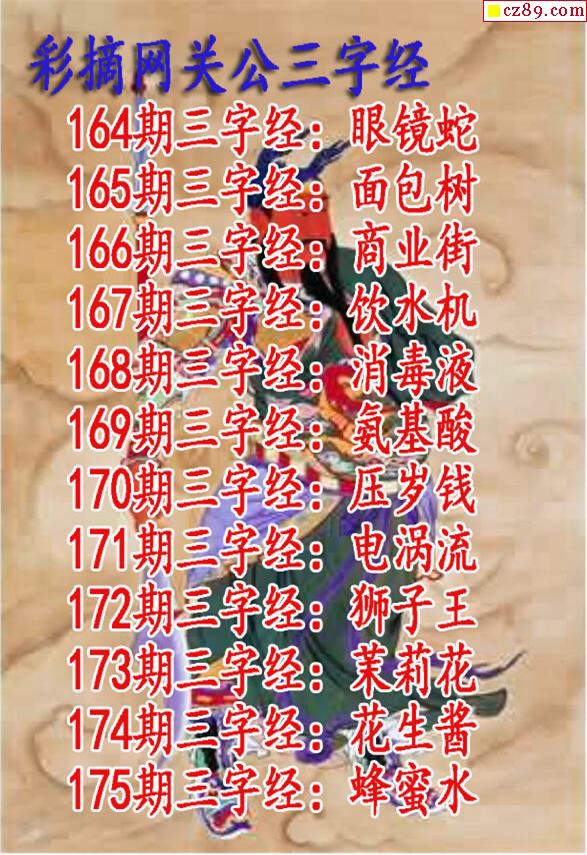 cz89.com
彩摘网关公三字经
164期三字经：眼镜蛇
165期三字经：面包树
166期三字经：商业街
167期三字经：饮水机
168期三字经：消毒液
169期三字经：氨基酸
170期三字经：压岁钱
171期三字经：电涡流
172期三字经：狮子王
173期三字经：茉莉花
174期三字经：花生酱
175期三字经：蜂蜜水